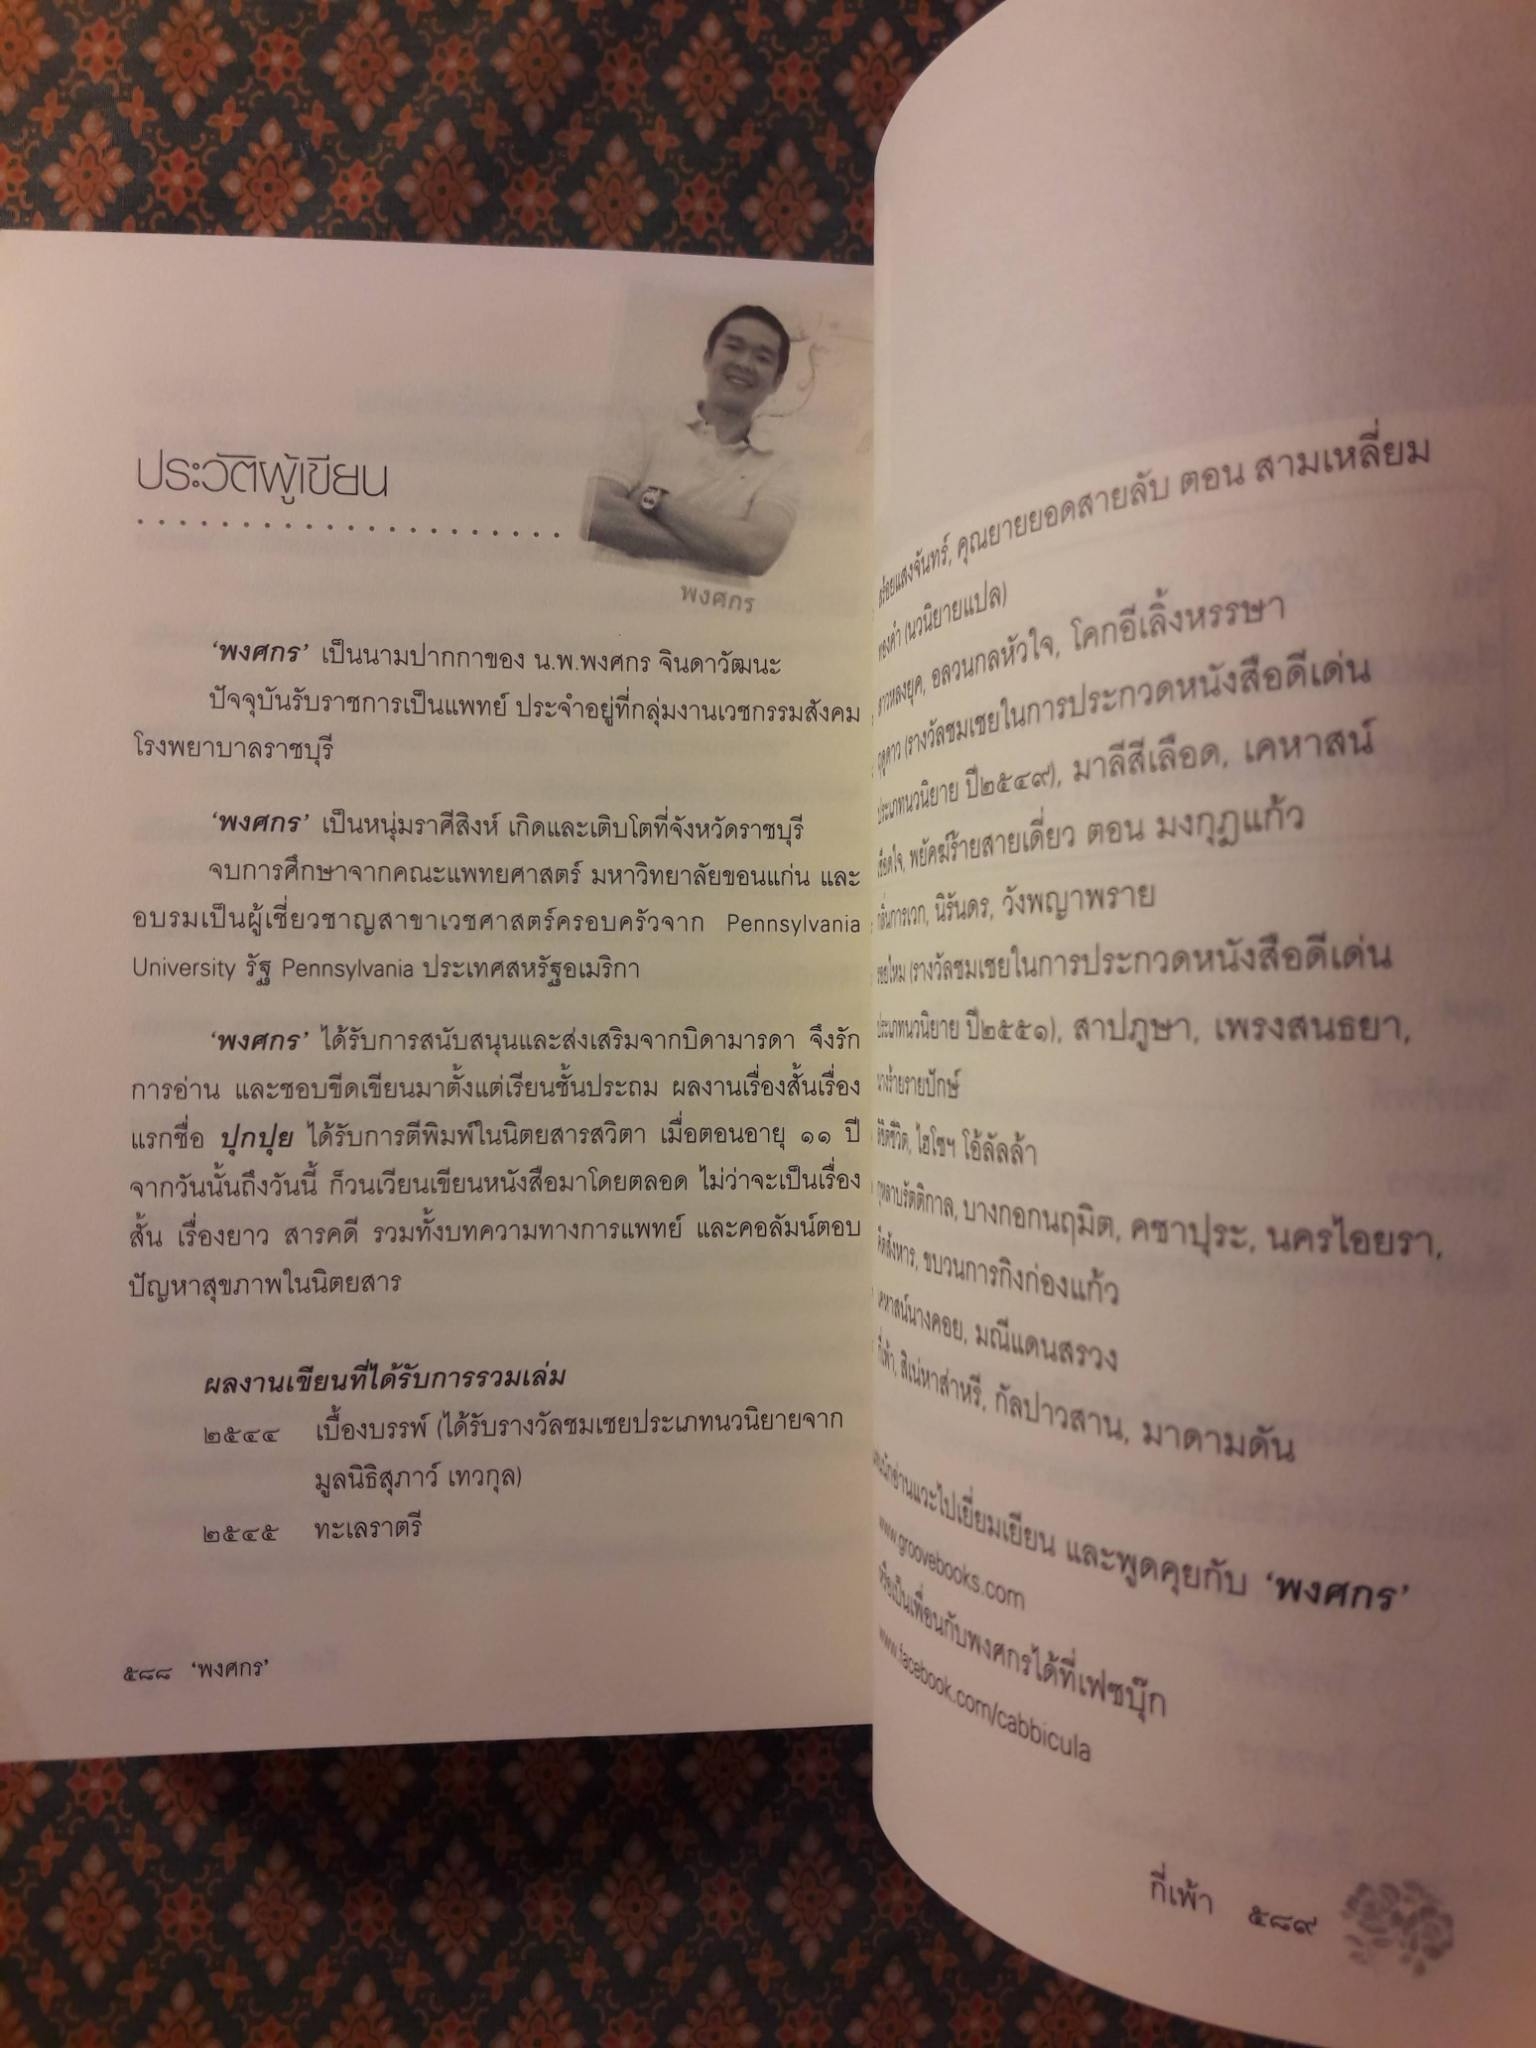 ประวัติผู้เขียน
พงศกร
‘พงศกร’ เป็นนามปากกาของ น.พ.พงศกร จินดาวัฒนะ
ปัจจุบันรับราชการเป็นแพทย์ ประจำอยู่ที่กลุ่มงานเวชกรรมสังคม
โรงพยาบาลราชบุรี
‘พงศกร’ เป็นหนุ่มราศีสิงห์ เกิดและเติบโตที่จังหวัดราชบุรี
จบการศึกษาจากคณะแพทยศาสตร์ มหาวิทยาลัยขอนแก่น และ
อบรมเป็นผู้เชี่ยวชาญสาขาเวชศาสตร์ครอบครัวจาก Pennsylvania
University รัฐ Pennsylvania ประเทศสหรัฐอเมริกา
‘พงศกร’ ได้รับการสนับสนุนและส่งเสริมจากบิดามารดา จึงรัก
การอ่าน และชอบขีดเขียนมาตั้งแต่เรียนชั้นประถม ผลงานเรื่องสั้นเรื่อง
แรกชื่อ ปุกปุย ได้รับการตีพิมพ์ในนิตยสารสวิตา เมื่อตอนอายุ ๑๑ ปี
จากวันนั้นถึงวันนี้ ก็วนเวียนเขียนหนังสือมาโดยตลอด ไม่ว่าจะเป็นเรื่อง
สั้น เรื่องยาว สารคดี รวมทั้งบทความทางการแพทย์ และคอลัมน์ตอบ
ปัญหาสุขภาพในนิตยสาร
ผลงานเขียนที่ได้รับการรวมเล่ม
๒๕๔๔ เบื้องบรรพ์ (ได้รับรางวัลชมเชยประเภทนวนิยายจาก
มูลนิธิสุภาว์ เทวกุล)
๒๕๔๕ ทะเลราตรี
๕๘๘ ‘พงศกร’
สร้อยแสงจันทร์, คุณยายยอดสายลับ ตอน สามเหลี่ยม
ทองคำ (นวนิยายแปล)
สาวหลงยุค, อลวนกลหัวใจ, โคกอีเลิ้งหรรษา
ฤดูดาว (รางวัลชมเชยในการประกวดหนังสือดีเด่น
ประเภทนวนิยาย ปี๒๕๔๙), มาลีสีเลือด, เคหาสน์
พยัคฆ์ร้ายสายเดี่ยว ตอน มงกุฎแก้ว
กลิ่นการเวก, นิรันดร, วังพญาพราย
(รางวัลชมเชยในการประกวดหนังสือดีเด่น
ประเภทนวนิยาย ปี๒๕๕๑), สาปภูษา, เพรงสนธยา,
นางร้ายรายปักษ์
ไฮโซฯ โอ้ลัลล้า
กุหลาบรัตติกาล, บางกอกนฤมิต, คชาปุระ, นครไอยรา,
ขบวนการกิงก่องแก้ว
เคหาสน์นางคอย, มณีแดนสรวง
กี่เพ้า, สิเน่หาส่าหรี, กัลปาวสาน, มาดามดัน
นักอ่านแวะไปเยี่ยมเยียน และพูดคุยกับ ‘พงศกร’
www.groovebooks.com
หรือเป็นเพื่อนกับพงศกรได้ที่เฟซบุ๊ก
www.facebook.com/cabbicula
กี่เพ้า ๕๘๙